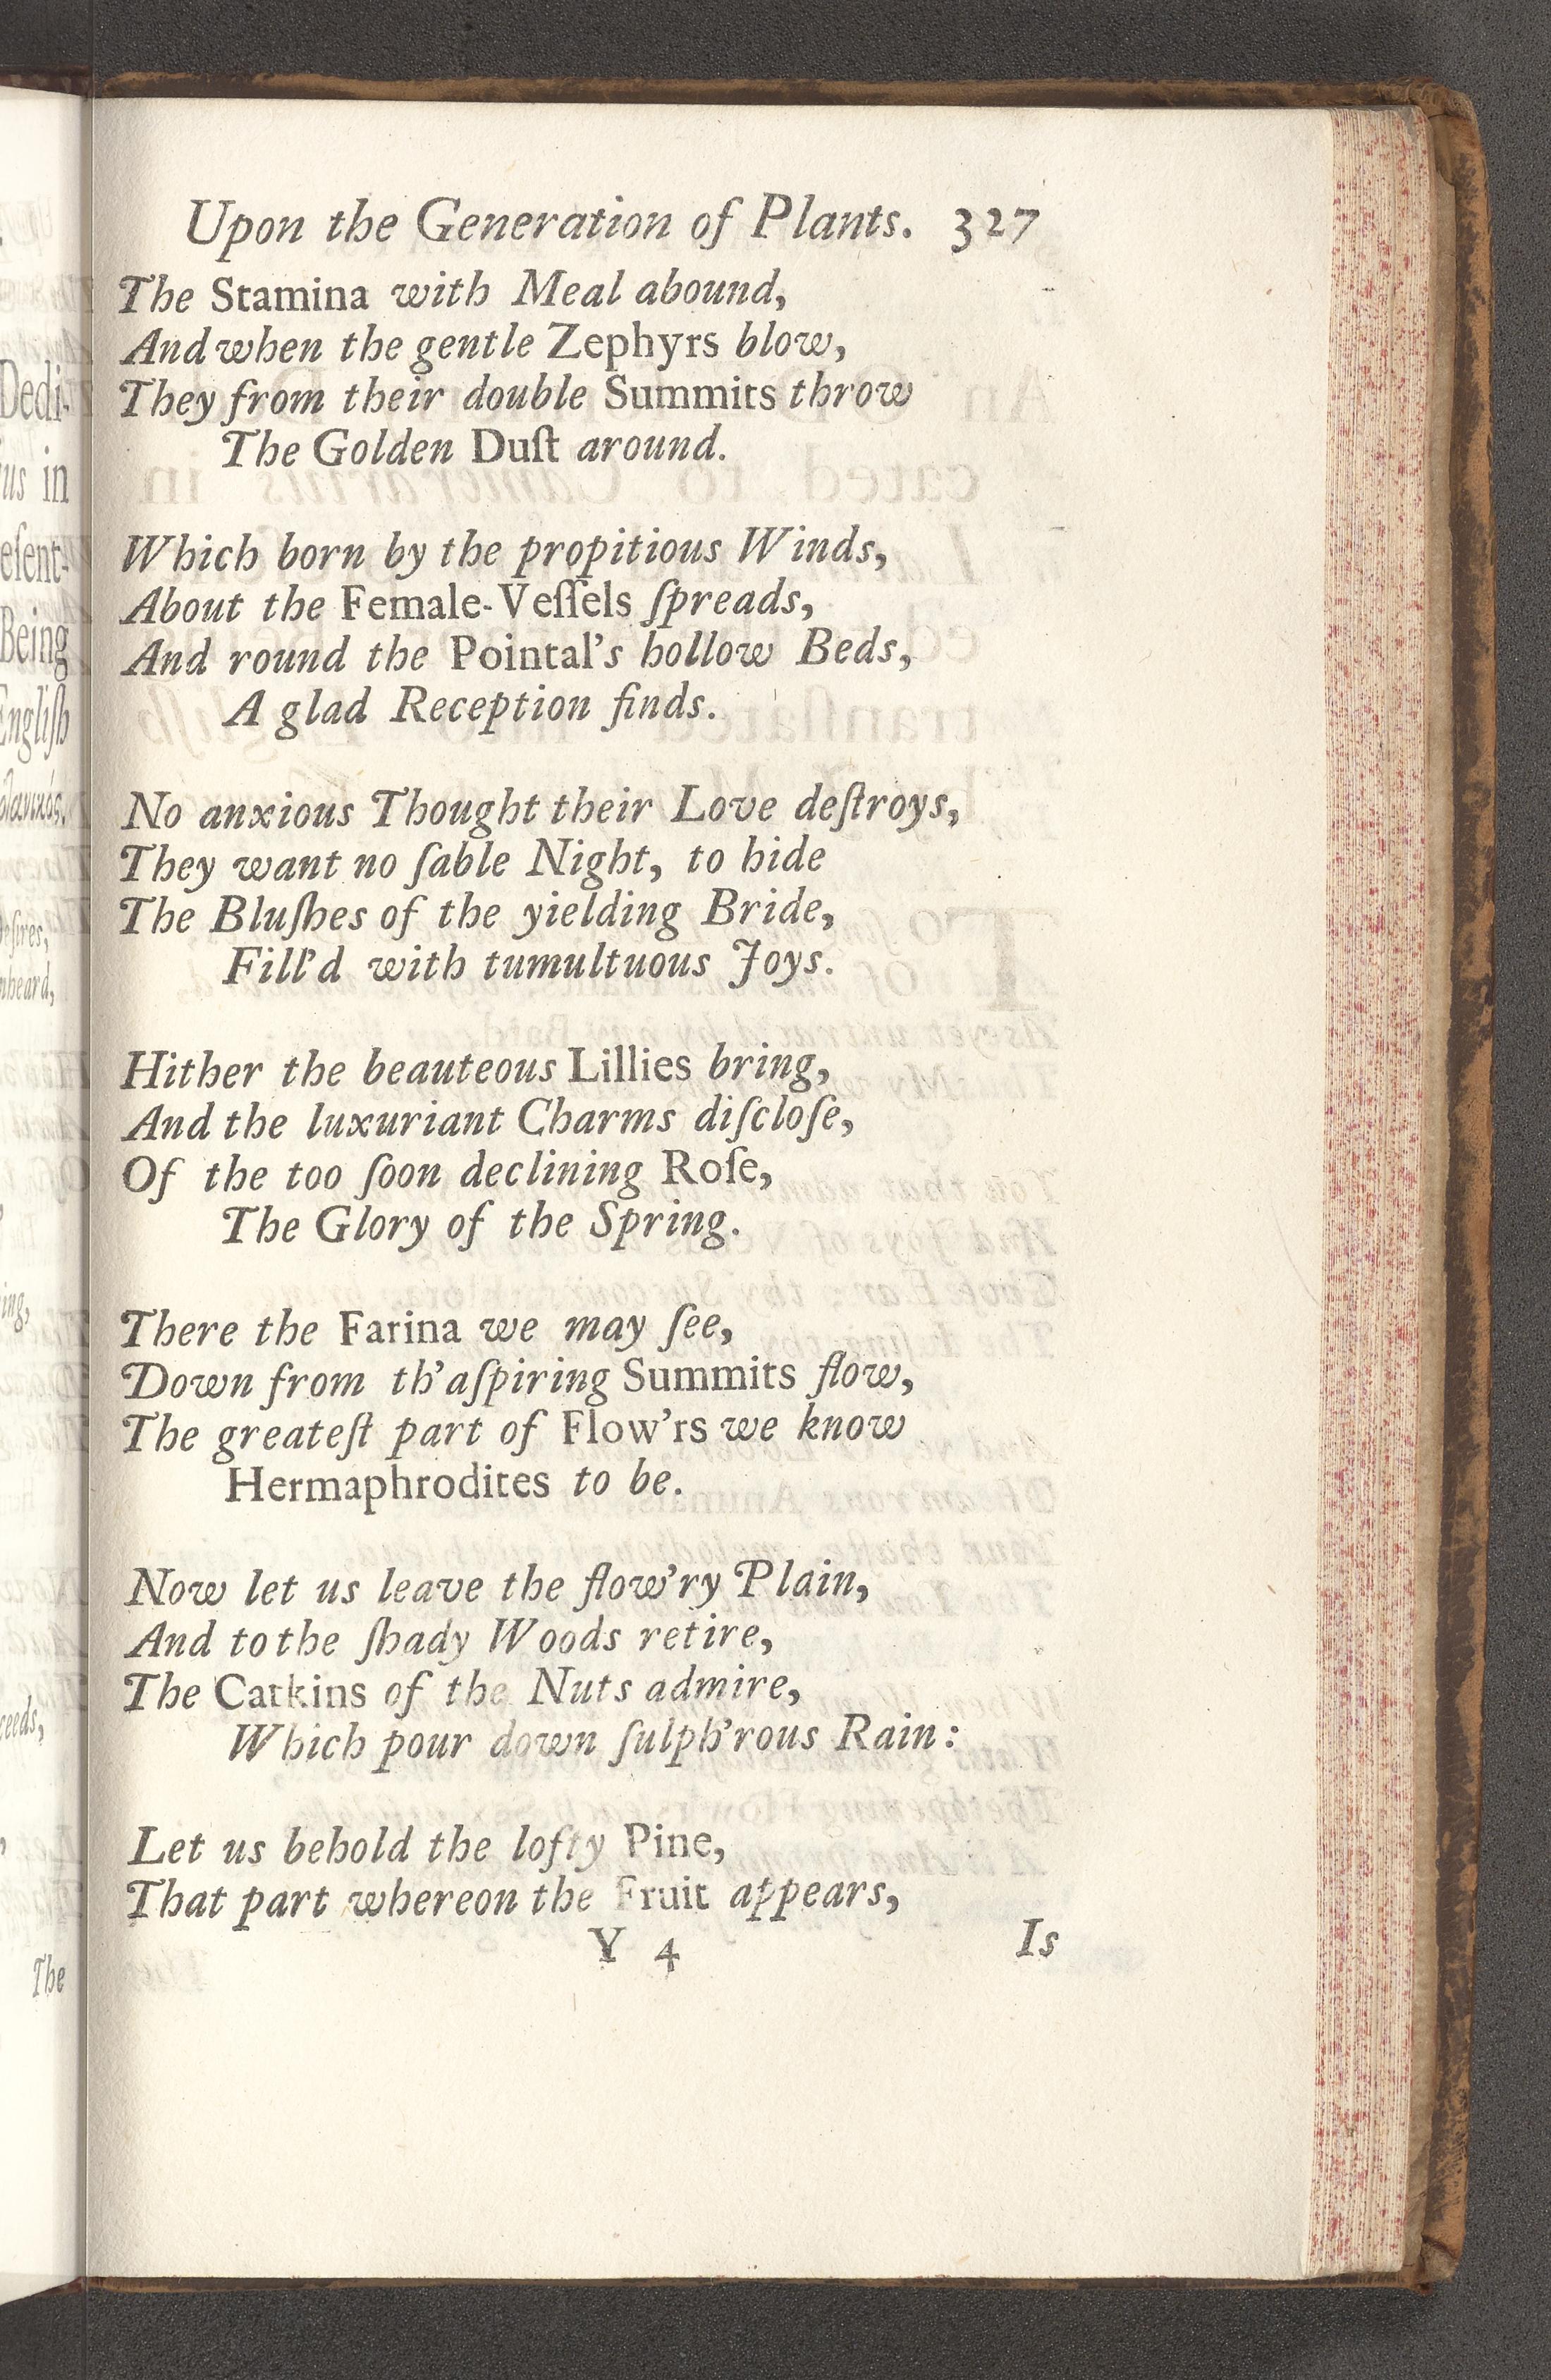 Upon the Generation of Plants. 327
The Stamina with Meal abound,
And when the gentle Zephyrs blow,
They from their double Summits throw
The Golden Duſt around.
Which born by the propitious Winds,
About the Female-Veſſels ſpreads,
And round the Pointal's hollow Beds,
A glad Reception finds.
No anxious Thought their Love deſtroys,
They want no ſable Night, to hide
The Bluſhes of the yielding Bride,
Fill'd with tumultuous Joys.
Hither the beauteous Lillies bring,
And the luxuriant Charms diſcloſe,
Of the too ſoon declining Roſe,
The Glory of the Spring.
There the Farina we may ſee,
Down from th'aſpiring Summits flow,
The greateſt part of Flow'rs we know
Hermaphrodites to be.
Now let us leave the flow'ry Plain,
And to the ſhady Woods retire,
The Catkins of the Nuts admire,
Which pour down ſulph'rous Rain:
Let us behold the lofty Pine,
That part whereon the Fruit appears,
Y 4 Is